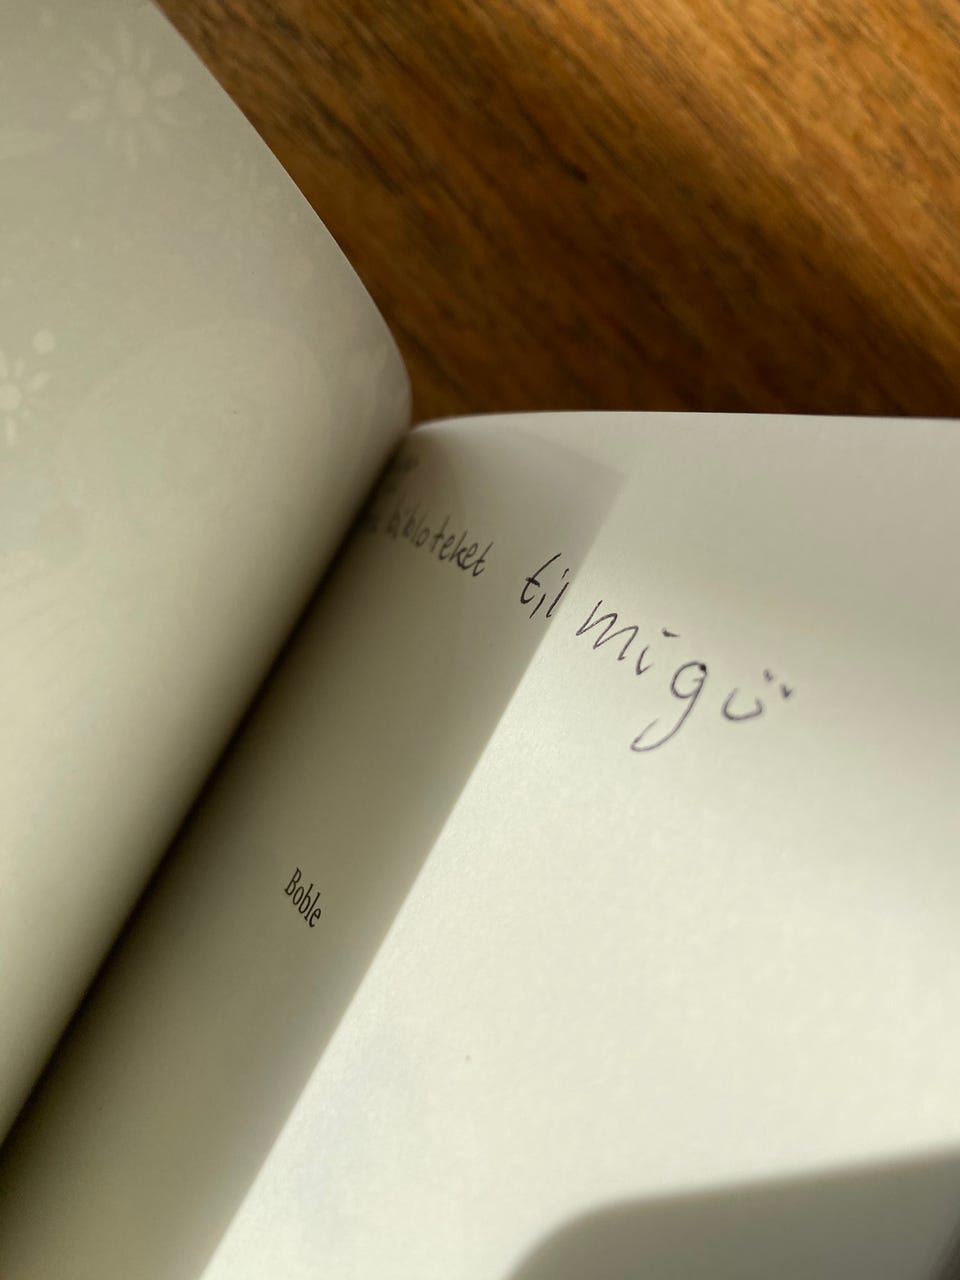 bibloteket til mig ü
Boble